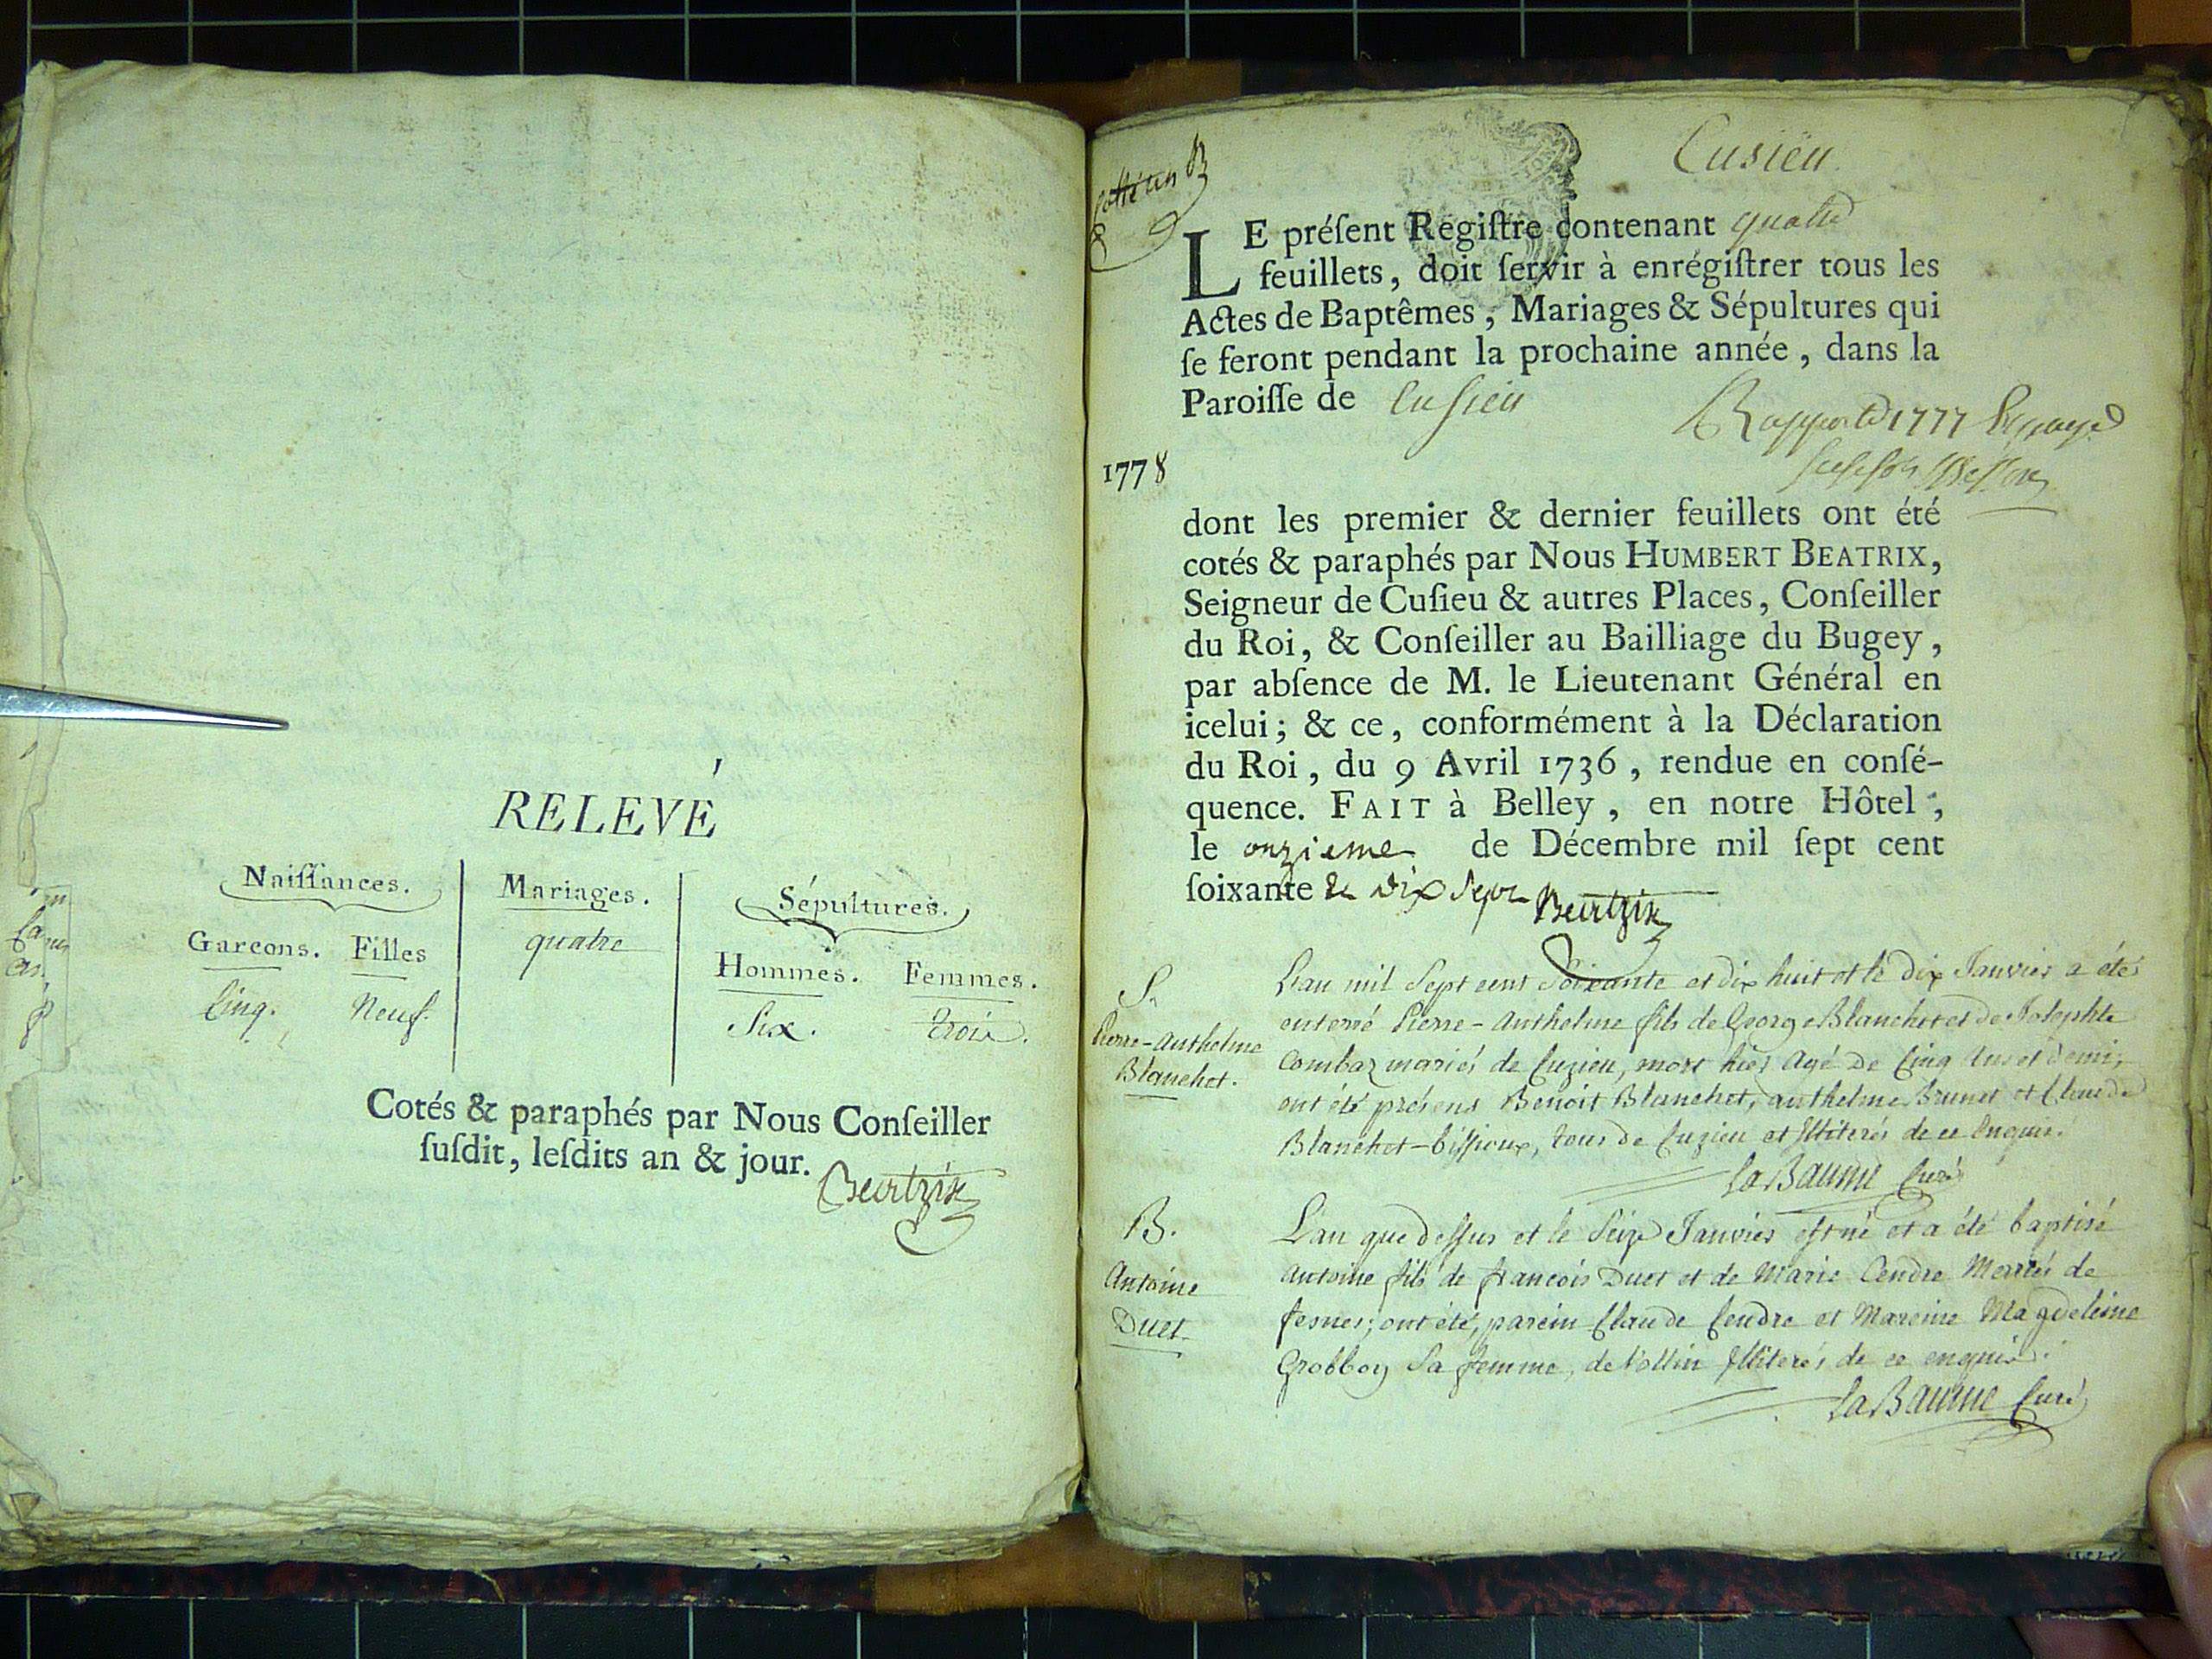 RELEVÉ
Naiſſances. Mariages. Sépultures.
Garcons. Filles quatre Hommes. Femmes.
Cinq. Neuf. Six. trois.
Cotés & paraphés par Nous Conſeiller
ſuſdit, leſdits an & jour.
Beatrix
Cusieu
LE préſent Regiſtre contenant quatre
feuillets, doit ſervir à enrégiſtrer tous les
Actes de Baptêmes, Mariages & Sépultures qui
ſe feront pendant la prochaine année, dans la
Paroiſſe de Cuſieu
Rapporté 1777
1778
dont les premier & dernier feuillets ont été
cotés & paraphés par Nous HUMBERT BEATRIX,
Seigneur de Cuſieu & autres Places, Conſeiller
du Roi, & Conſeiller au Bailliage du Bugey,
par abſence de M. le Lieutenant Général en
icelui; & ce, conformément à la Déclaration
du Roi, du 9 Avril 1736, rendue en conſé-
quence. FAIT à Belley, en notre Hôtel,
le onzieme de Décembre mil ſept cent
ſoixante & dix sept Beatrix
S.
Pierre-Anthelme
Blanchet.
L'an mil Sept cent Soixante et dix huit et le dix Janvier a été
enterré Pierre-Anthelme fils de George Blanchet et de Josephte
Combaz mariés de Cuzieu, mort hier agé de Cinq Ans et demi,
ont été présens Benoit Blanchet, anthelme Brunet et Claude
Blanchet-Bissioux, tous de Cuzieu et Illiterés de ce Enquis.
La Baume Curé
B.
Antoine
Duet
L'an que deſſus et le Seize Janvier eſt né et a été baptisé
Antoine fils de francois Duet et de Marie Cendre Mariés de
fesnes; ont été, parein Claude Cendre et Mareine Magdeleine
Grobboz Sa femme, de Vollin Illiterés de ce enquis.
La Baume Curé